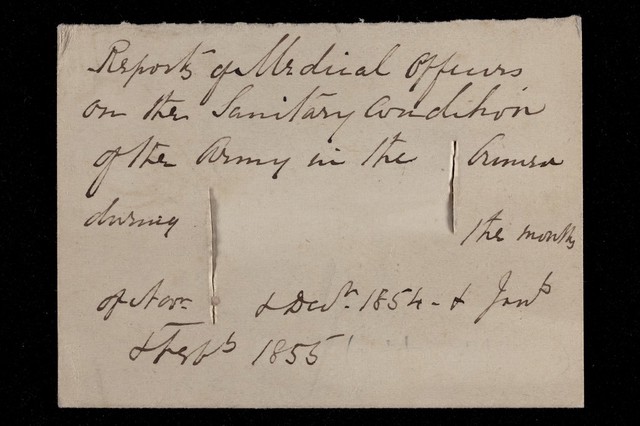 Reports of Medical Officers
on the Sanitary Condition
of the Army in the Crimea
during the months
of Novr & Decr. 1854 - & Jany
& Feby 1855